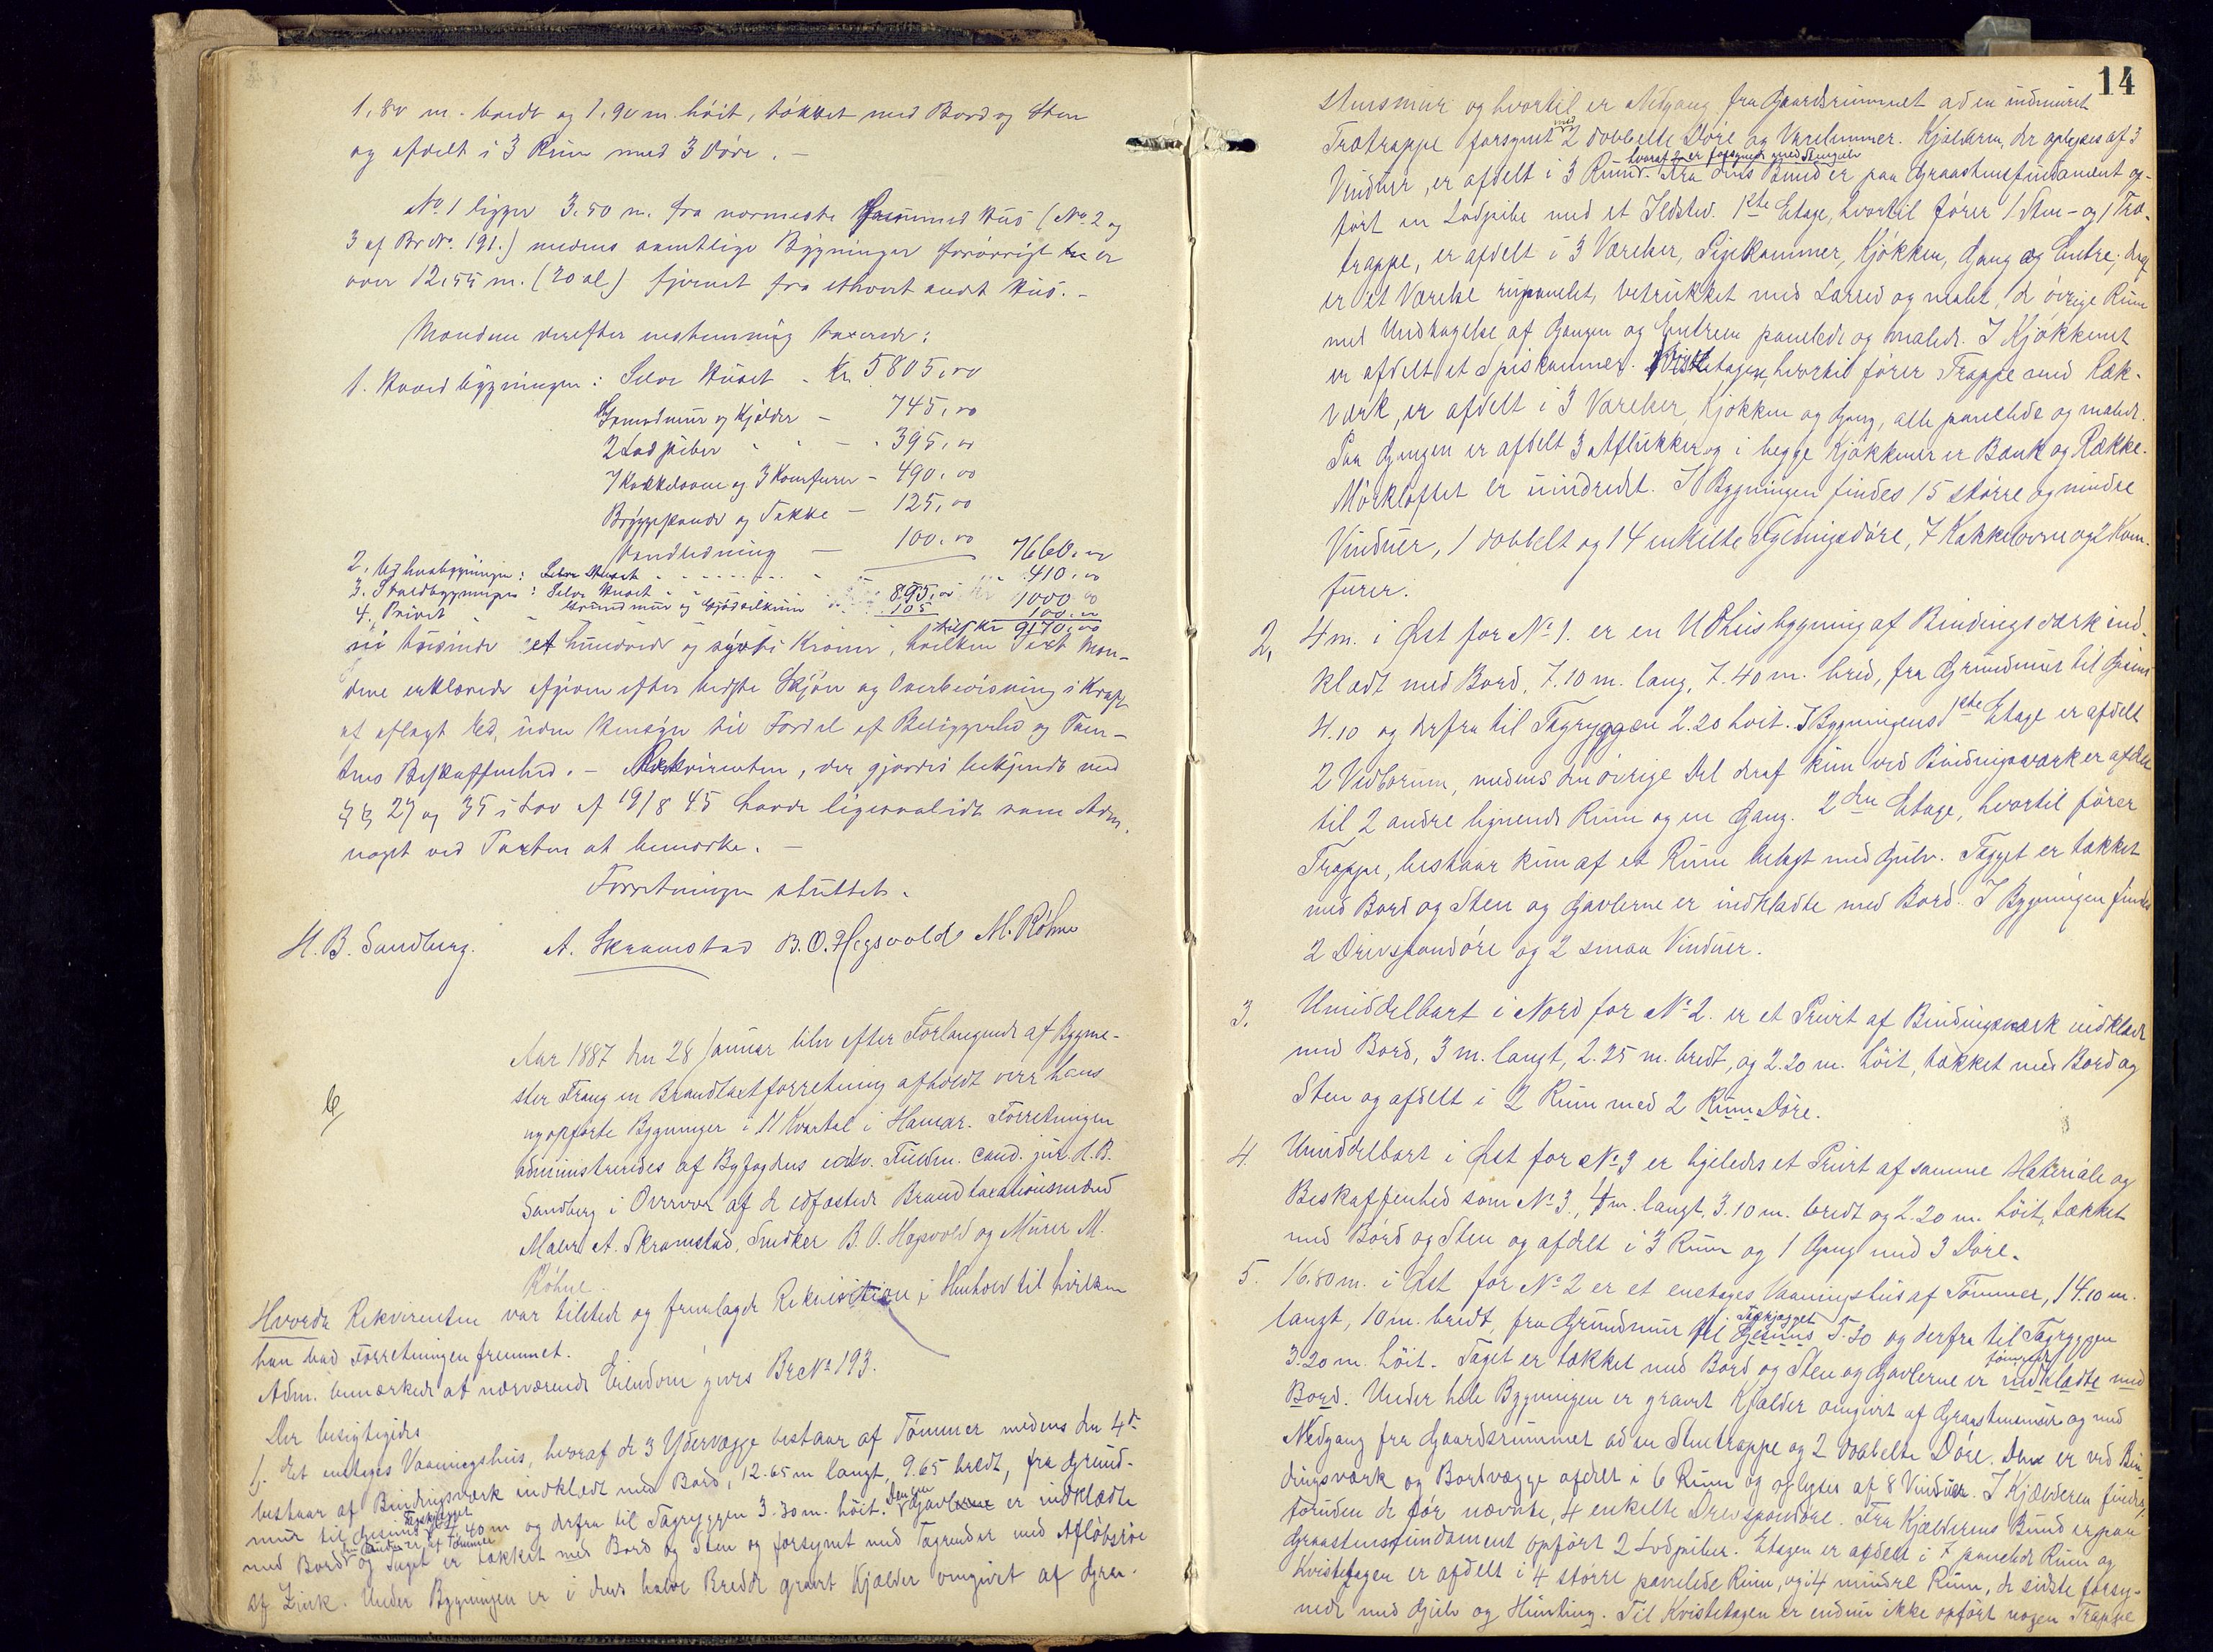 1,80 m. bredt og 1,90 m. höit, tækket med Bord og Sten
og afdelt i 3 Rum med 3 Döre. –
No. 1 ligger 3.50 m. fra nærmeste Hus (No. 2 og
3 af Br No. 191.) medens samtlige Bygninger forövrigt er
over 12,55 m. (20 al) fjernet fra ethvert andet Hus. –
Mændene derefter enstemmig taxerede:
1. Hovedbygningen: Selve Huset - Kr. 5805,00
Grundmur og Kjælder – 745,00
2 Lodpiber - - - 395,00
7 Kakkelovne og 3 Komfurer – 490,00
Bryggepande og Takke – 125,00
Vandledning – 100,00 7660,00
2. Udhusbygningen: Selve Huset - - - 410,00
3. Staldbygningen: Selve Huset - - 895,00
Grundmur og Gjödselkum - 105 1000 00
4. Privet - - 100,00
tils Kr 9170,00
ni tusinde et hundrede og sytti Kroner, hvilken Taxt Mæn-
dene erklærede afgiven efter bedste Skjön og Overbevisning i Kraft
af aflagt Ed, uden Hensyn til Fordel af Beliggenhed og Tom-
tens Beskaffenhed. – Rekvirenten, der gjordes bekjendt med
§§ 27 og 35 i Lov af 19/8 45 havde ligesaalidt som Adm.
noget ved Taxten at bemærke. –
Forretningen sluttet.
H. B. Sandberg. A. Skramstad B. O. Hegsvold M. Röhne
6
Aar 1887 den 28 Januar blev efter Forlangende af Bygme-
ster Frang en Brandtaxtforretning afholdt over hans
nyopförte Bygninger i 11 Kvartal i Hamar. Forretningen
administreredes af Byfogdens edsv. Fuldm. cand. jur. H. B.
Sandberg i Overvær af de edfæstede Brandtaxationsmænd
Maler A. Skramstad, Snedker B. O. Hegsvold og Murer M.
Röhne.
Hvorda Rekvirenten var tilstede og fremlagde Rekvisition i Henhold til hvilken
han bad Forretningen fremmet.
Adm. bemærkede at nærværende Eiendom gives Br No 193.
Der besigtigedes
1. Et enetages Vaaningshus, hvoraf de 3 Ydervægge bestaar af Tömmer medens den 4de
bestaar af Bindingsværk indklædt med Bord, 12.65 m langt, 9.65 bredt, fra Grund-
Tagskjægget Den ene
mur til Gesims 5.40 m og derfra til Tagryggen 3.30 m. höit. Gavlerne er indklædte
den anden er af Tömmer
med Bord og Taget er tækket med Bord og Sten og forsynet med Tagrender med Aflöbsröe
af Zink. Under Bygningen er i dens halve Bredde gravet Kjælder omgivet af Graa-
14
stensmur og hvortil er Nedgang fra Gaardsrummet ad en indmuret
med
Trætrappe forsynet 2 dobbelte Döre og Vareluemmer. Kjælderen, der oplyses af 3
hvoraf 2 er forsynede med Stengulv
Vinduer, er afdelt i 3 Rum. Fra dens Bund er paa Graastensfundament op-
fört en Lodpibe med et Ildsted. 1ste Etage, hvortil förer 1 Sten- og 1 Træ-
trappe, er afdelt i 3 Værelser, Pigekammer, Kjökken, Gang og Entre; deraf
er et Værelse rupanelet, betrukket med Lærred og malet, de övrige Rum
med Undtagelse af Gangen og Entreen panelede og malede. I Kjökkenet
er afdelt et Spiskammer. Kvistetagen, hvortil förer Trappe med Ræk-
værk, er afdelt i 3 Værelser, Kjökken og Gang, alle panelede og malede.
Paa Gangen er afdelt 3 Aflukker og i begge Kjökkener er Bænk og Række.
Mörkloftet er uindredet. I Bygningen findes 15 större og mindre
Vinduer, 1 dobbelt og 14 enkelte Fyldingsdöre, 7 Kakkelovne og 2 Kom-
furer.
2, 4 m. i Öst for No 1. er en Udhusbygning af Bindingsværk ind-
klædt med Bord, 7.10 m. lang, 7.40 m. bred, fra Grundmur til Gesims
4.10 og derfra til Tagryggen 2.20 höit. I Bygningens 1ste Etage er afdelt
2 Vedborum, medens den övrige Del deraf kun ved Bindingsværk er afdelt
til 2 andre lignende Rum og en Gang. 2den Etage, hvortil förer
Trappe, bestaar kun af et Rum belagt med Gulv. Tagget er tækket
med Bord og Sten og Gavlerne er indklædte med Bord. I Bygningen findes
2 Drevspondöre og 2 smaa Vinduer.
3. Umiddelbart i Nord for No 2. er et Privet af Bindingsværk indklædt
med Bord, 3 m. langt, 2.25 m. bredt, og 2.20 m. höit, tækket med Bord og
Sten og afdelt i 2 Rum med 2 Rum Döre.
4. Umiddelbart i Öst for No 3 er ligeledes et Privet af samme Materiale og
Beskaffenhed som No 3., 4 m. langt, 3.10 m. bredt og 2.20 m. höit, tækket
med Bord og Sten og afdelt i 3 Rum og 1 Gang med 3 Döre.
5. 16.80 m. i Öst for No 2 er et enetages Vaaningshus af Tömmer, 14.10 m.
Tagskjægget
langt, 10 m. bredt, fra Grundmur til Gesims 5.30 og derfra til Tagryggen
tömrede
3.20 m. höit. Taget er tækket med Bord og Sten og Gavlerne er indklædte med
Bord. Under hele Bygningen er gravet Kjælder omgivet af Graastensmur og med
Nedgang fra Gaardsrummet ad en Stentrappe og 2 dobbelte Döre. Den er ved Bin-
dingsværk og Bordvægge afdelt i 6 Rum og oplyses af 8 Vinduer. I Kjælderen findes,
foruden de för nævnte, 4 enkelte Drevspondöre. Fra Kjælderens Bund er paa
Graastensfundament opfört 2 Lodpiber. Etagen er afdelt i 7 panelede Rum og
Kvistetagen er afdelt i 4 större panelede Rum, og i 4 mindre Rum, de sidste forsy-
nede med Gulv og Himling. Til Kvistetagen er endnu ikke opfört nogen Trappe